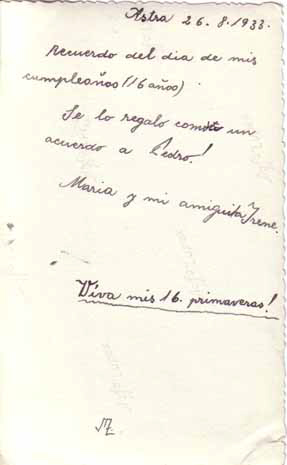 Astra 26.8.1933.
Recuerdo del dia de mis
cumpleaños (16 años)
Se lo regalo como un
acuerdo a Pedro!
Maria y mi amiguita Irene.
Viva mis 16. primaveras!